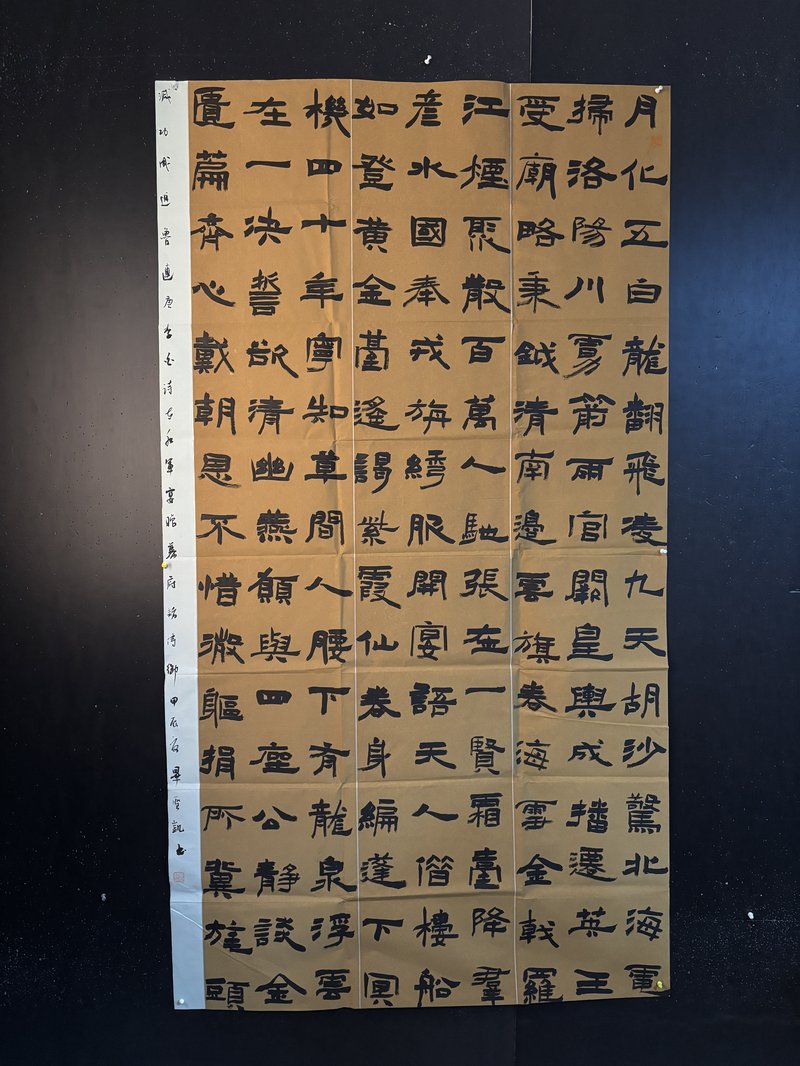 月化五白龍翻飛凌九天胡沙驚北海電
掃洛陽川虜箭雨宮闕皇輿成播遷英王
受廟略秉鉞清南邊雲旗卷海雪金戟羅
江煙聚散百萬人馳張在一賢霜臺降羣
彥水國奉戎旃繡服開宴語天人借樓船
如登黃金臺遙謁紫霞仙卷身編蓬下冥
機四十年寧知草間人腰下有龍泉浮雲
在一決誓欲清幽燕願與四座公靜談金
匱篇齊心戴朝恩不惜微軀捐所冀旄頭
滅功成追魯連唐李白詩在水軍宴贈幕府諸侍御甲辰夏畢凱書